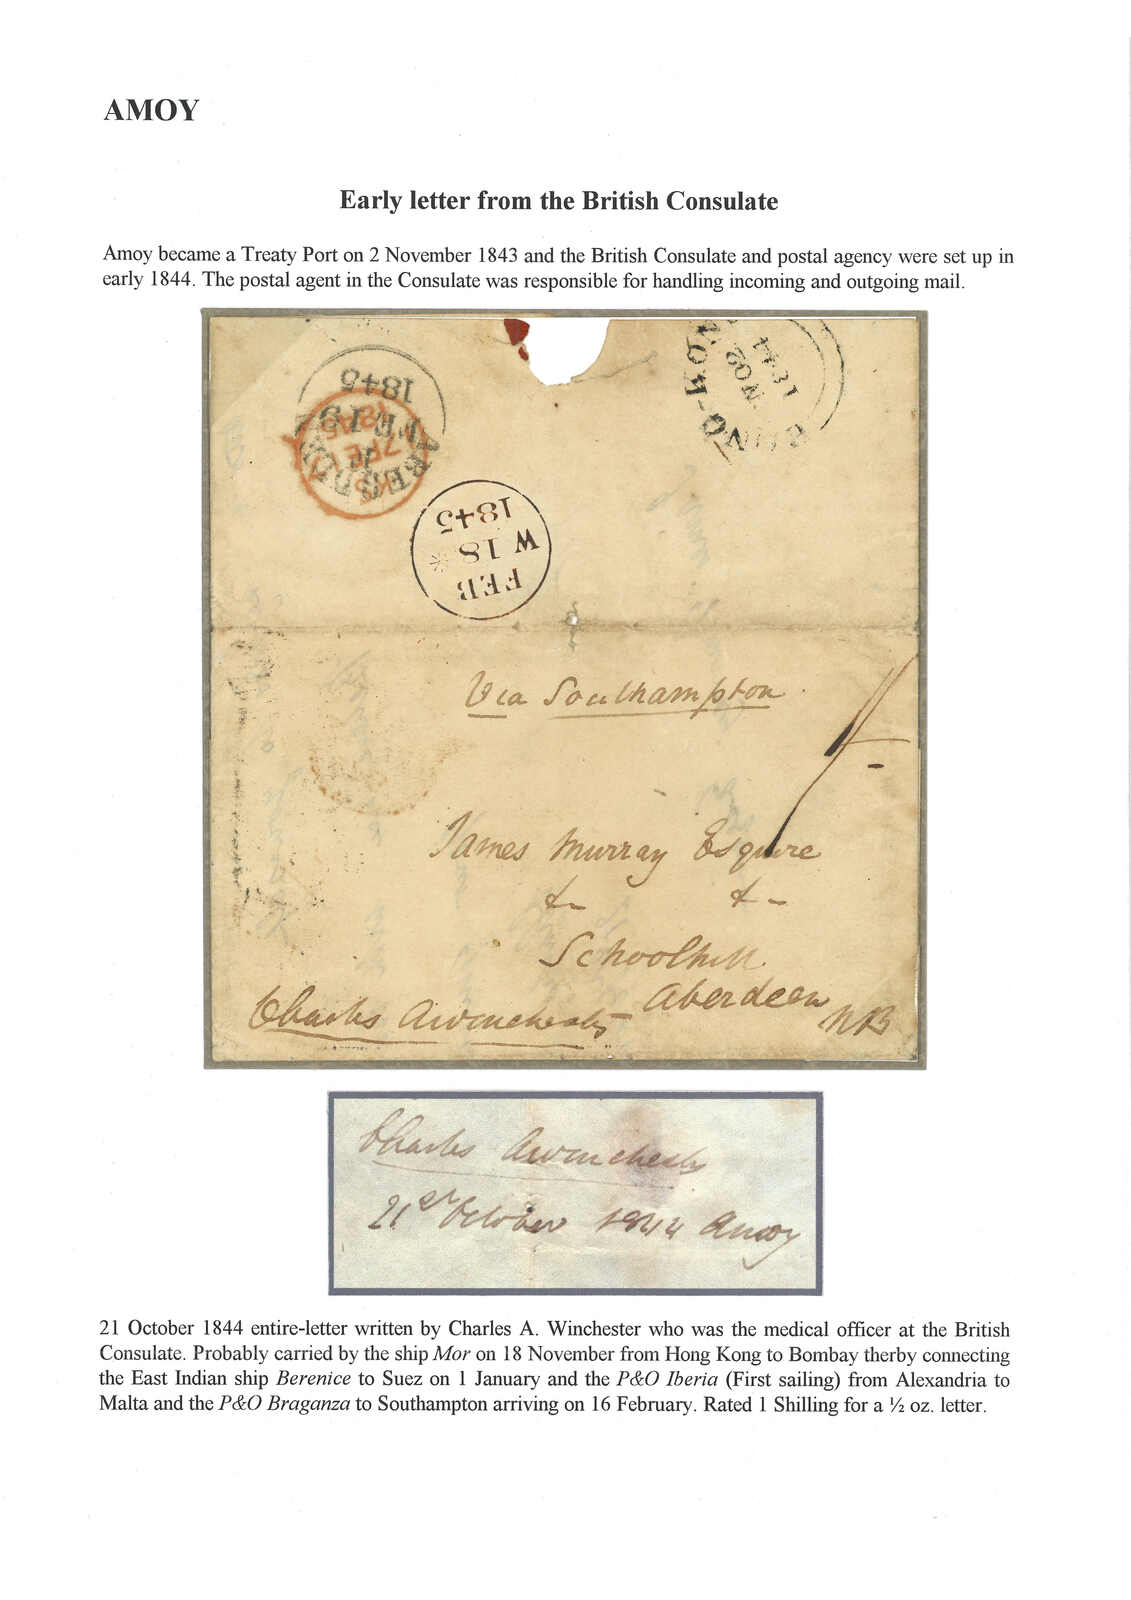 AMOY
Early letter from the British Consulate
Amoy became a Treaty Port on 2 November 1843 and the British Consulate and postal agency were set up in
early 1844. The postal agent in the Consulate was responsible for handling incoming and outgoing mail.
NO 2
1844
ABERDEEN
FE 19
1845
1845
FEB
W 18
1845
Via Southampton
James Murray Esquire
&- &-
Schoolhill
Aberdeen
NB
Charles Awinchester
Charles Awinchester
21st October 1844 Amoy
21 October 1844 entire-letter written by Charles A. Winchester who was the medical officer at the British
Consulate. Probably carried by the ship Mor on 18 November from Hong Kong to Bombay therby connecting
the East Indian ship Berenice to Suez on 1 January and the P&O Iberia (First sailing) from Alexandria to
Malta and the P&O Braganza to Southampton arriving on 16 February. Rated 1 Shilling for a ½ oz. letter.